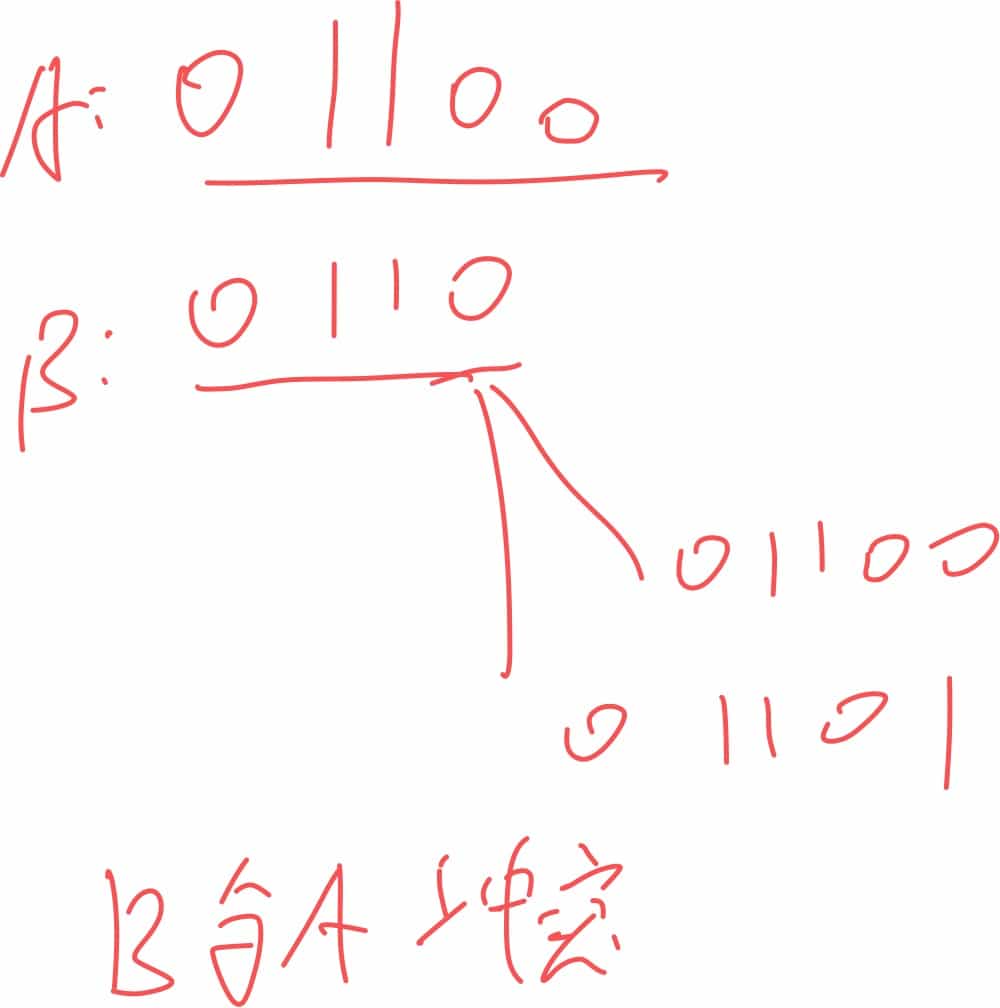 A: 01100
B: 0110
01100
01101
B与A冲突